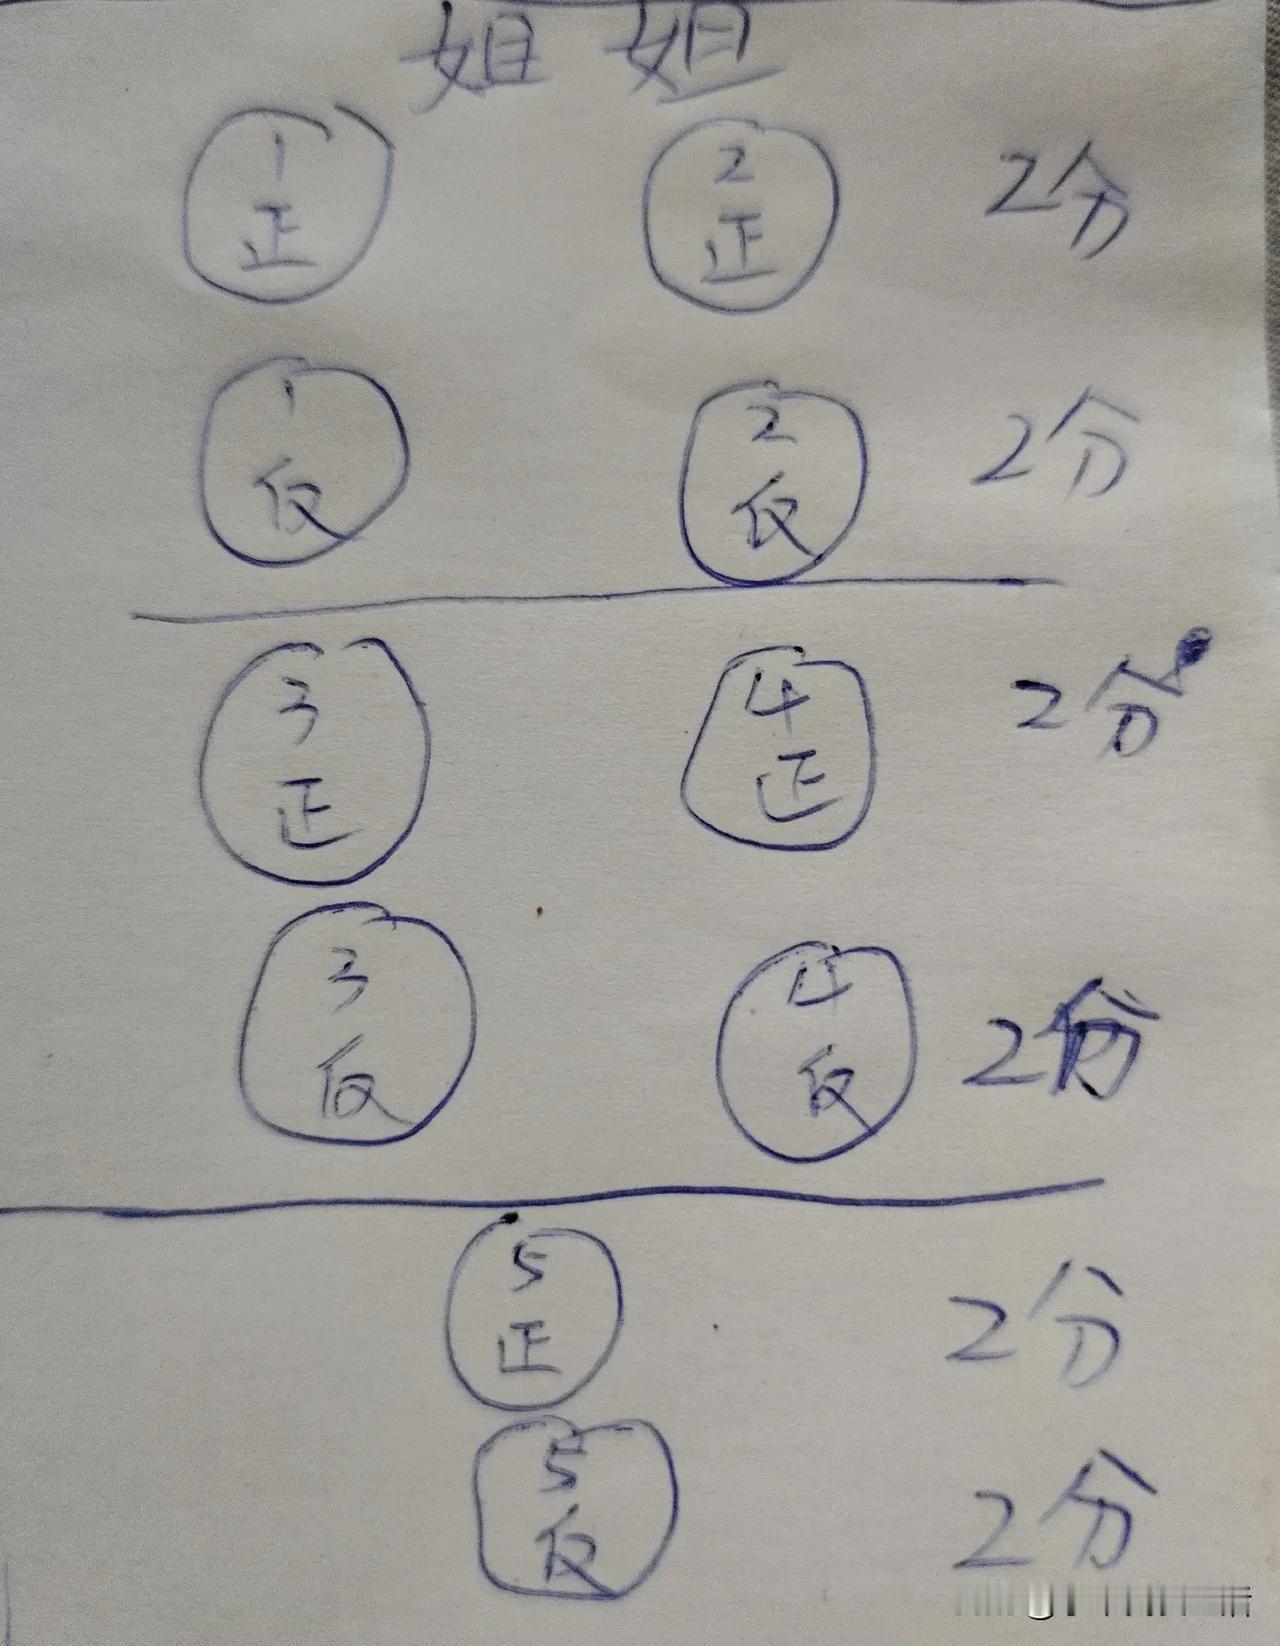 姐 姐
1 2 2分
正 正
1 2 2分
反 反
3 4 2分
正 正
3 4 2分
反 反
5 2分
正
5 2分
反